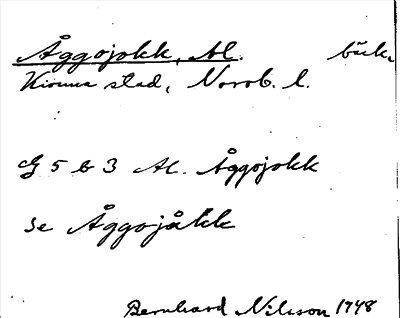 Åggojokk, Al. bäck.
Kiruna stad, Norrb. l.
G 5 b 3 Al. Åggojokk
se Åggojåkk
Bernhard Nilsson 1948